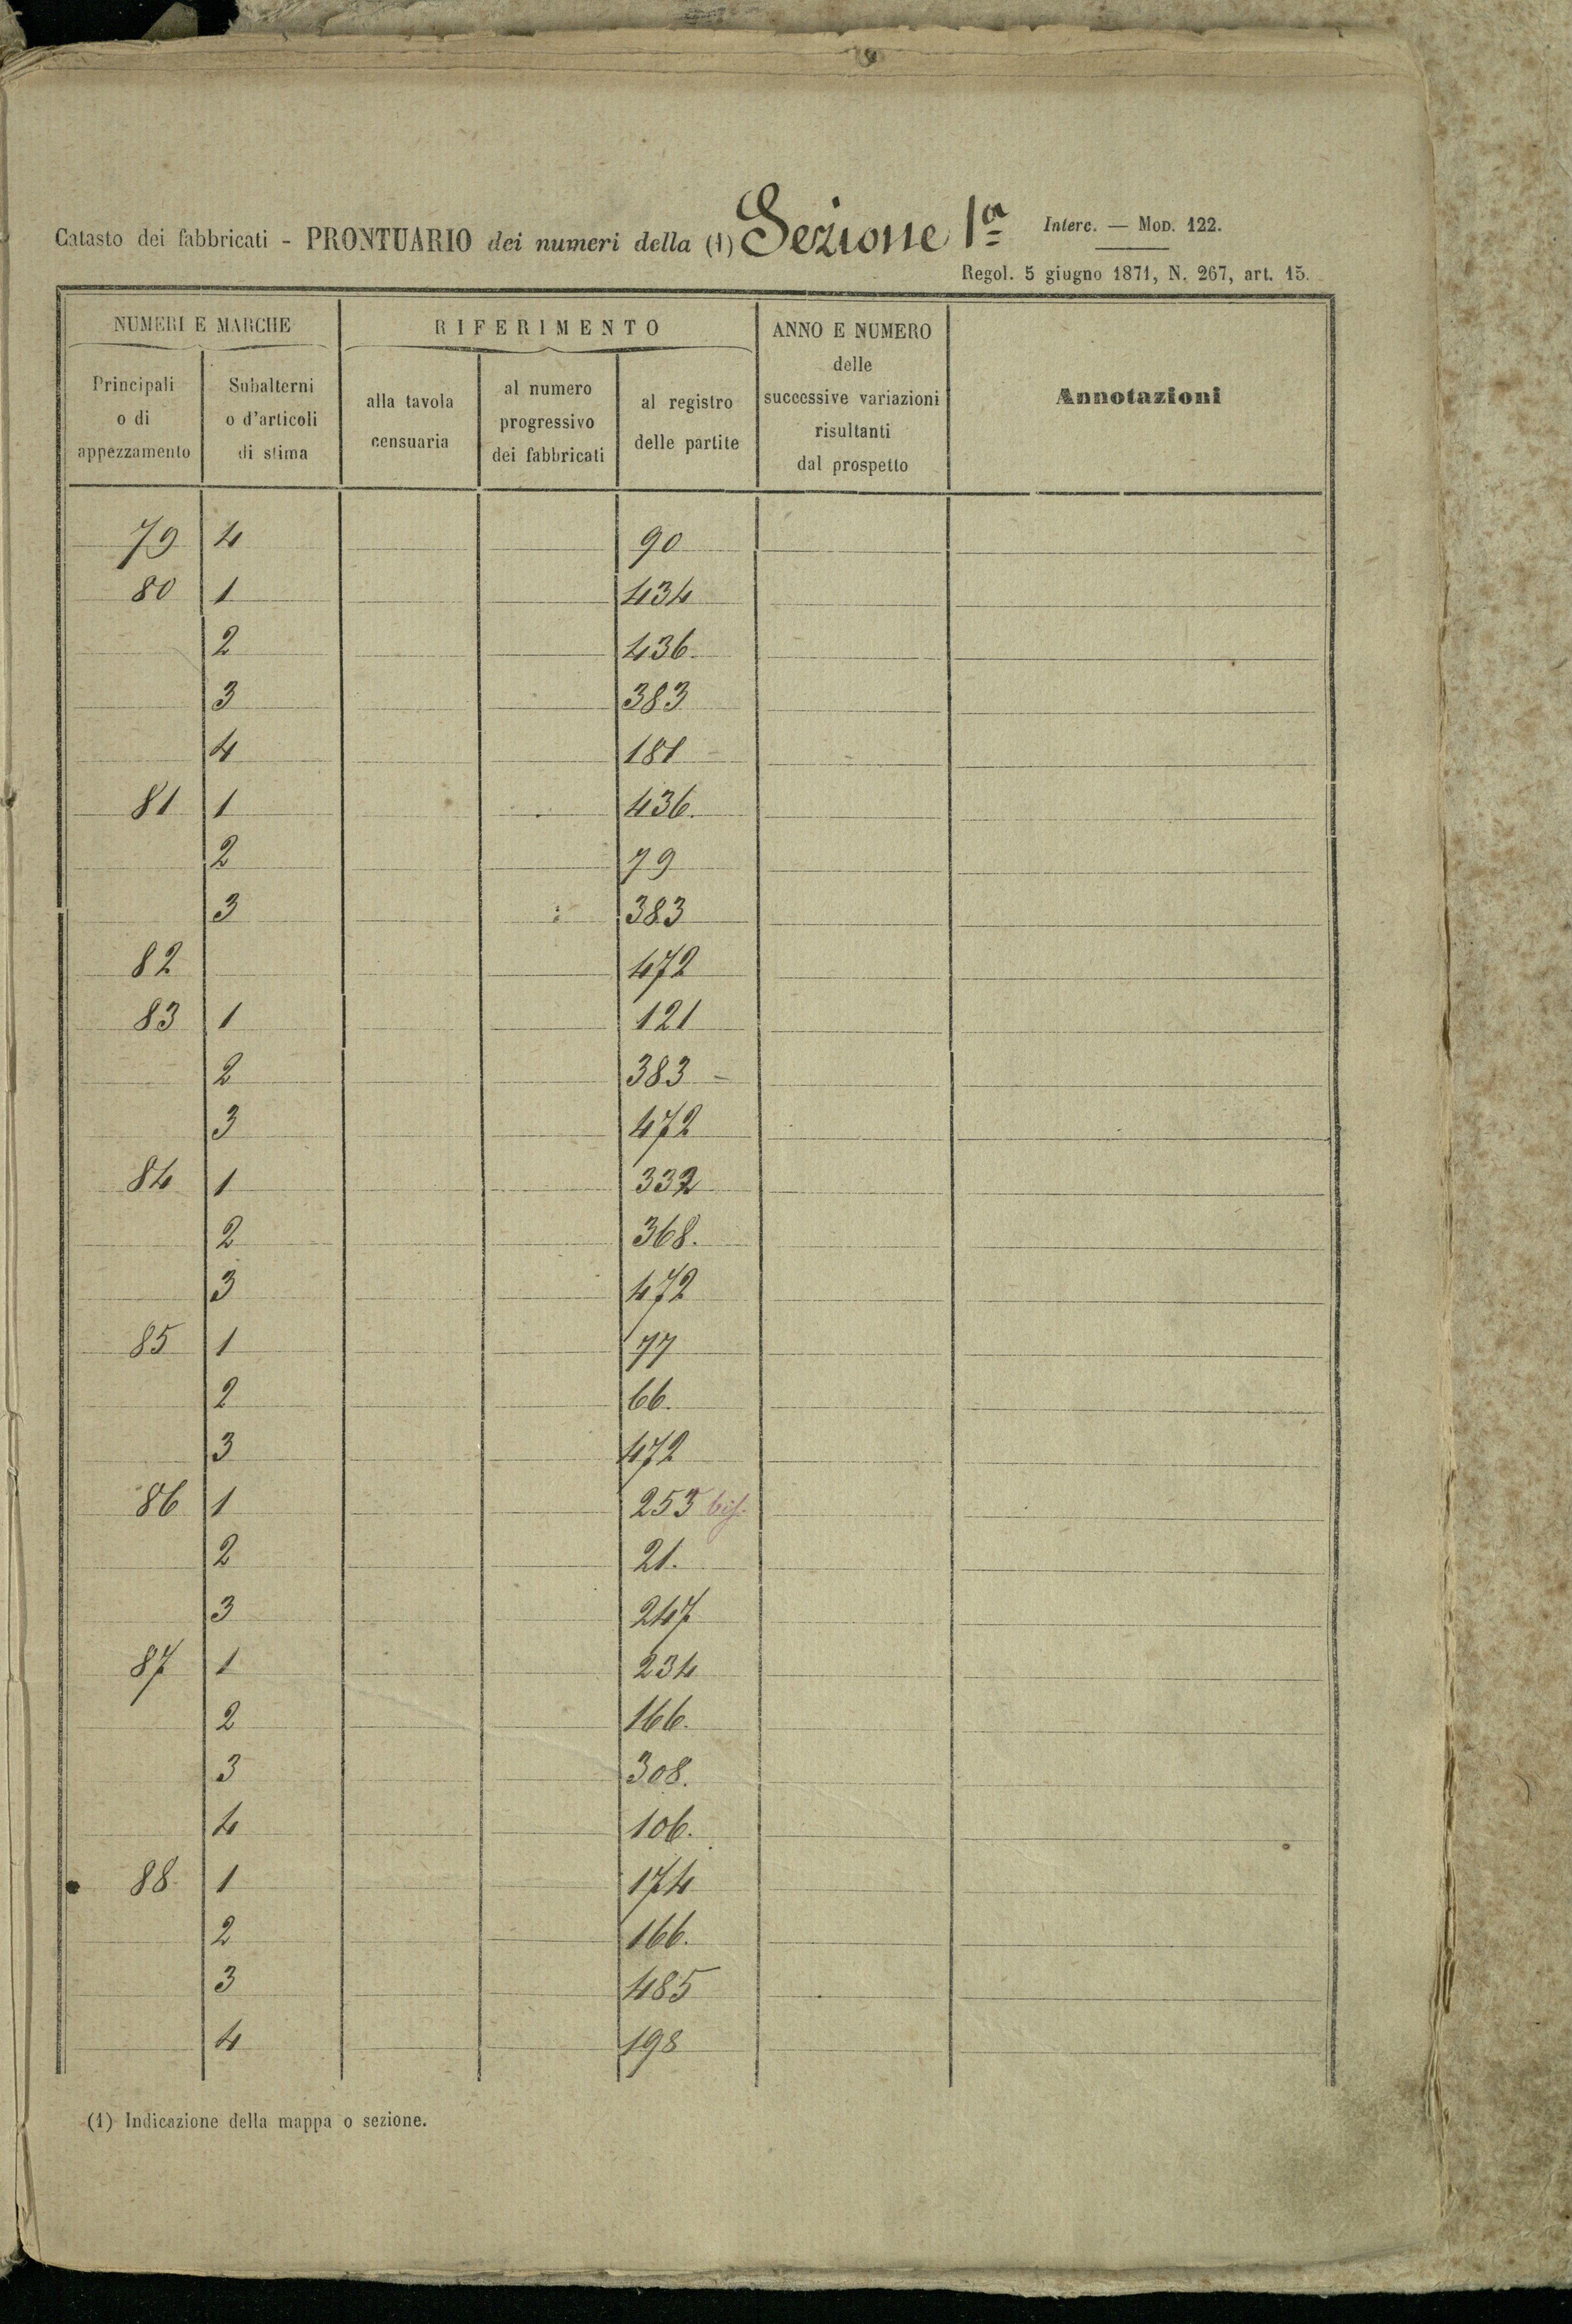 Catasto dei fabbricati - PRONTUARIO dei numeri della (1) Sezione 1ª
Interc. — Mod. 122.
Regol. 5 giugno 1871, N. 267, art. 15.
NUMERI E MARCHE
Principali o di appezzamento
Subalterni o d'articoli di stima
RIFERIMENTO
alla tavola censuaria
al numero progressivo dei fabbricati
al registro delle partite
ANNO E NUMERO delle successive variazioni risultanti dal prospetto
Annotazioni
79 4 90
80 1 434
2 436.
3 383
4 181
81 1 436.
2 79
3 383
82 472
83 1 121
2 383 -
3 472
84 1 332
2 368.
3 472
85 1 77
2 66.
3 472
86 1 253 bis.
2 21.
3 247
87 1 234
2 166.
3 308.
4 106.
88 1 174
2 166.
3 485
4 198
(1) Indicazione della mappa o sezione.